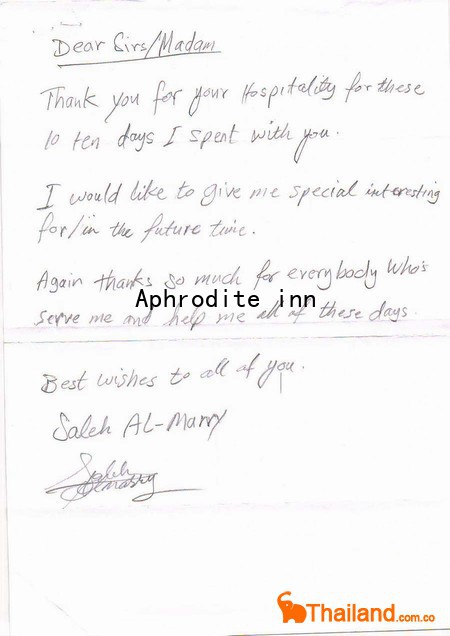 Dear Sirs/Madam
Thank you for your Hospitality for these
10 ten days I spent with you.
I would like to give me special interesting
for/in the future time.
Again thanks so much for everybody who's
Aphrodite inn
serve me and help me all of these days.
Best wishes to all of you.
Saleh AL-Marry
Saleh
Thailand.com.co